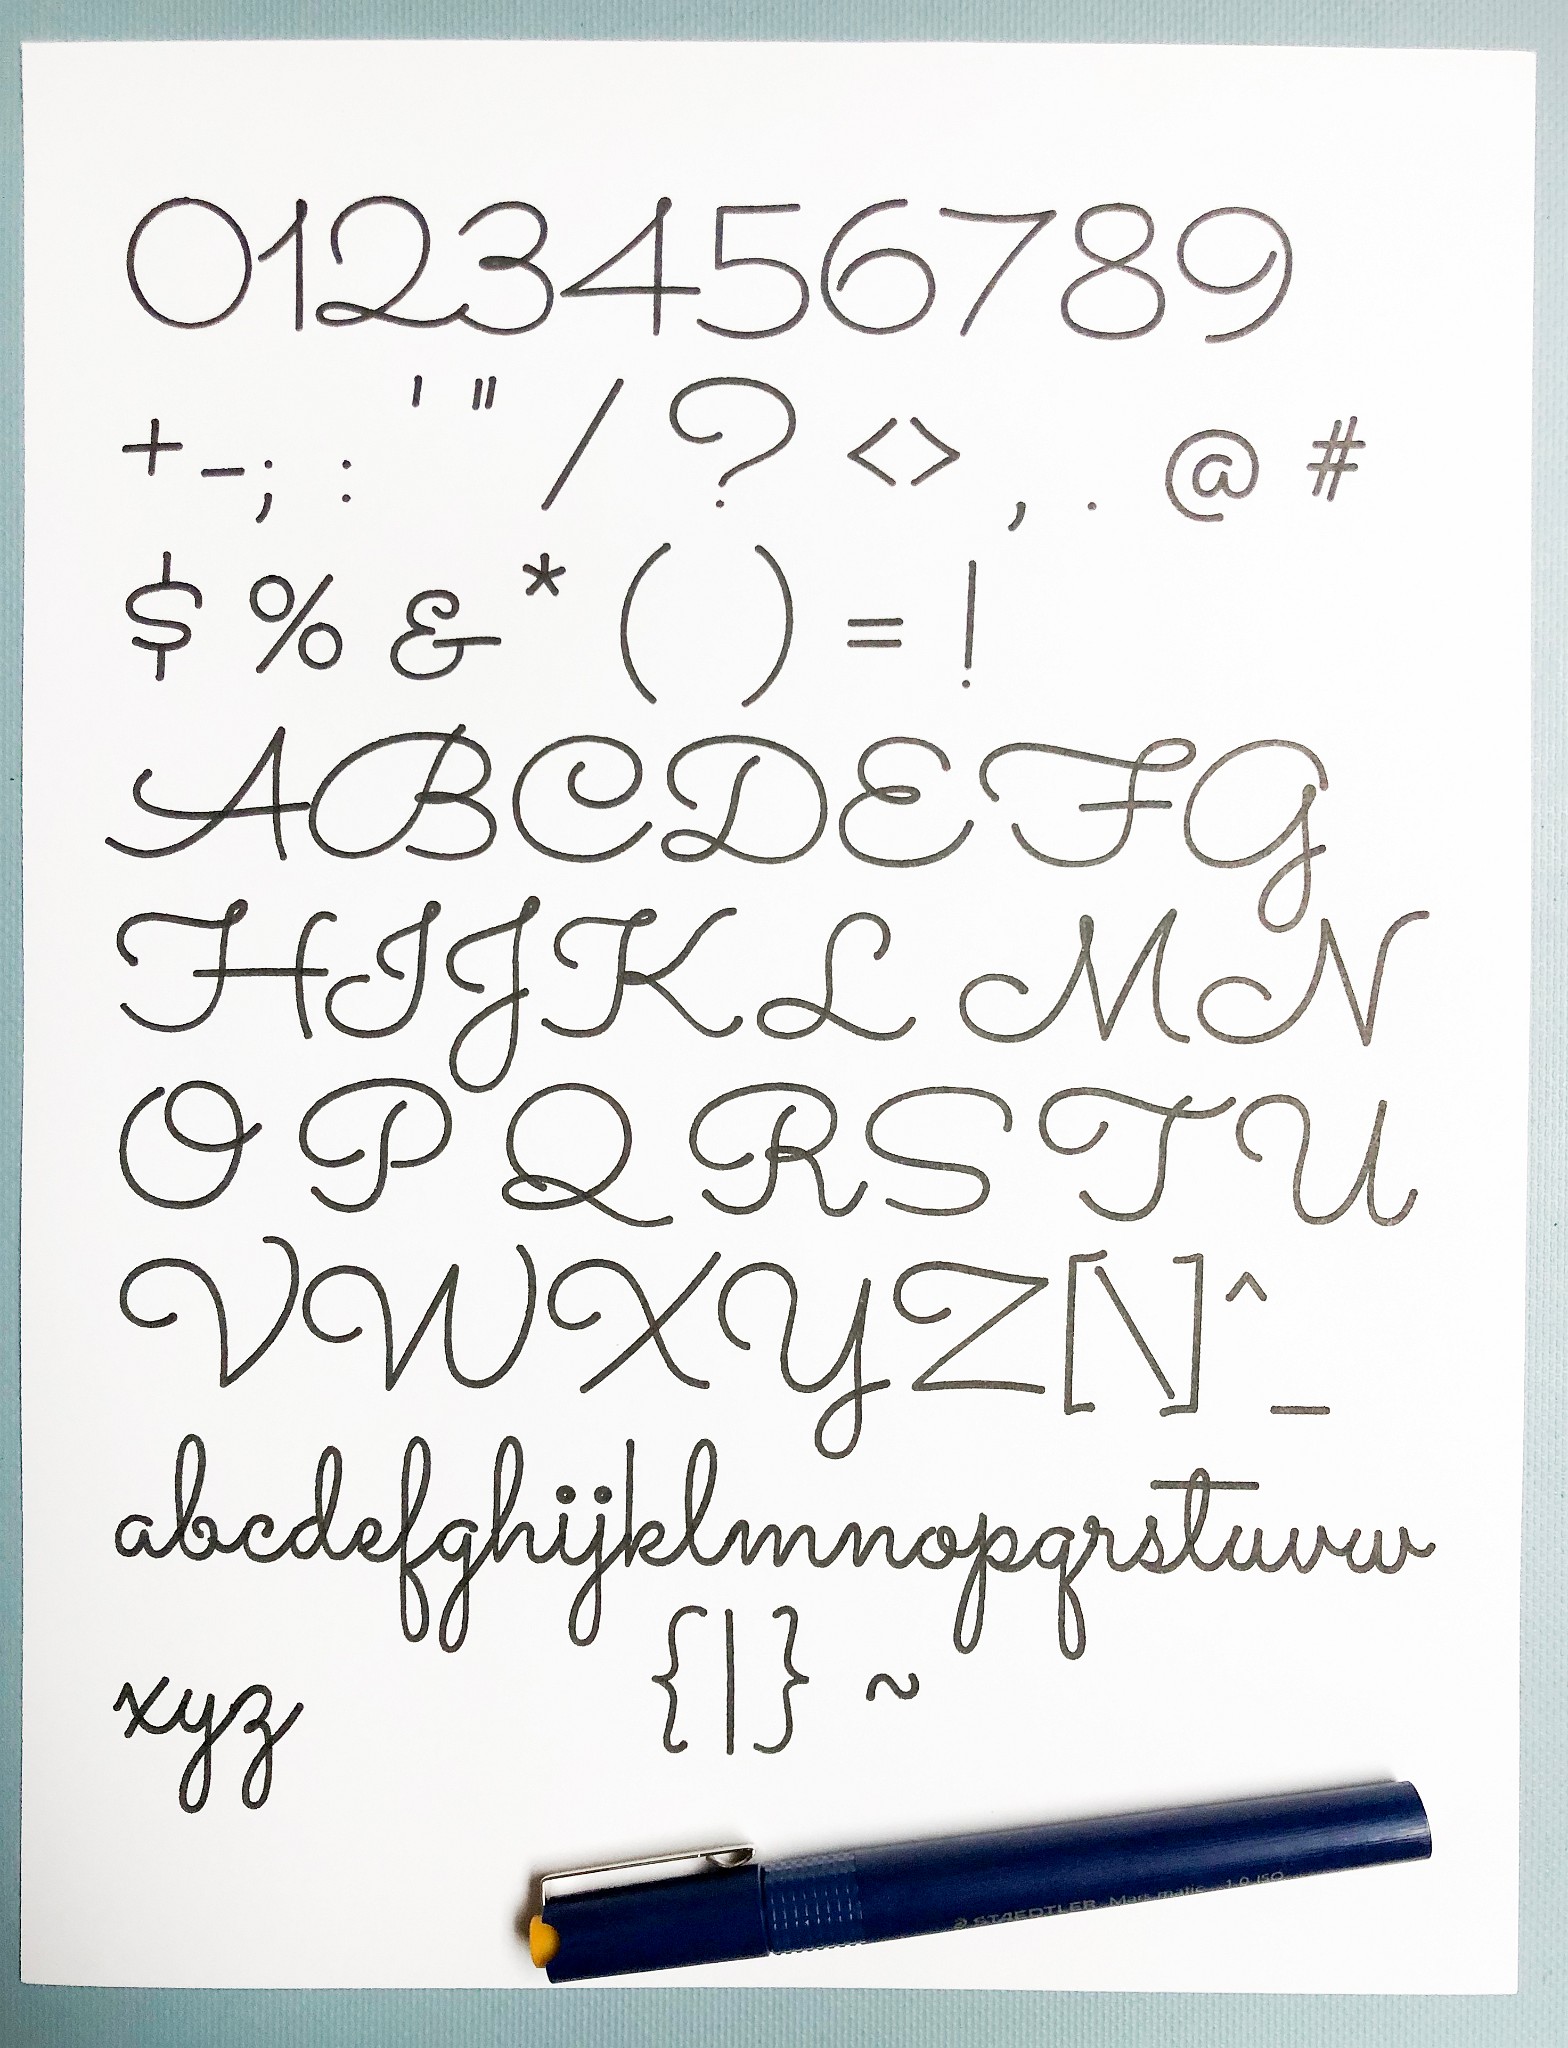 0123456789
+-; : ' " / ? <> , . @ #
$ % & * ( ) = !
ABCDEFG
HIJKL MN
O P Q RSTU
VWXYZ[\]^_
abcdefghijklmnopqrstuvw
xyz {|} ~
STAEDTLER Mars matic 1.0 ISO